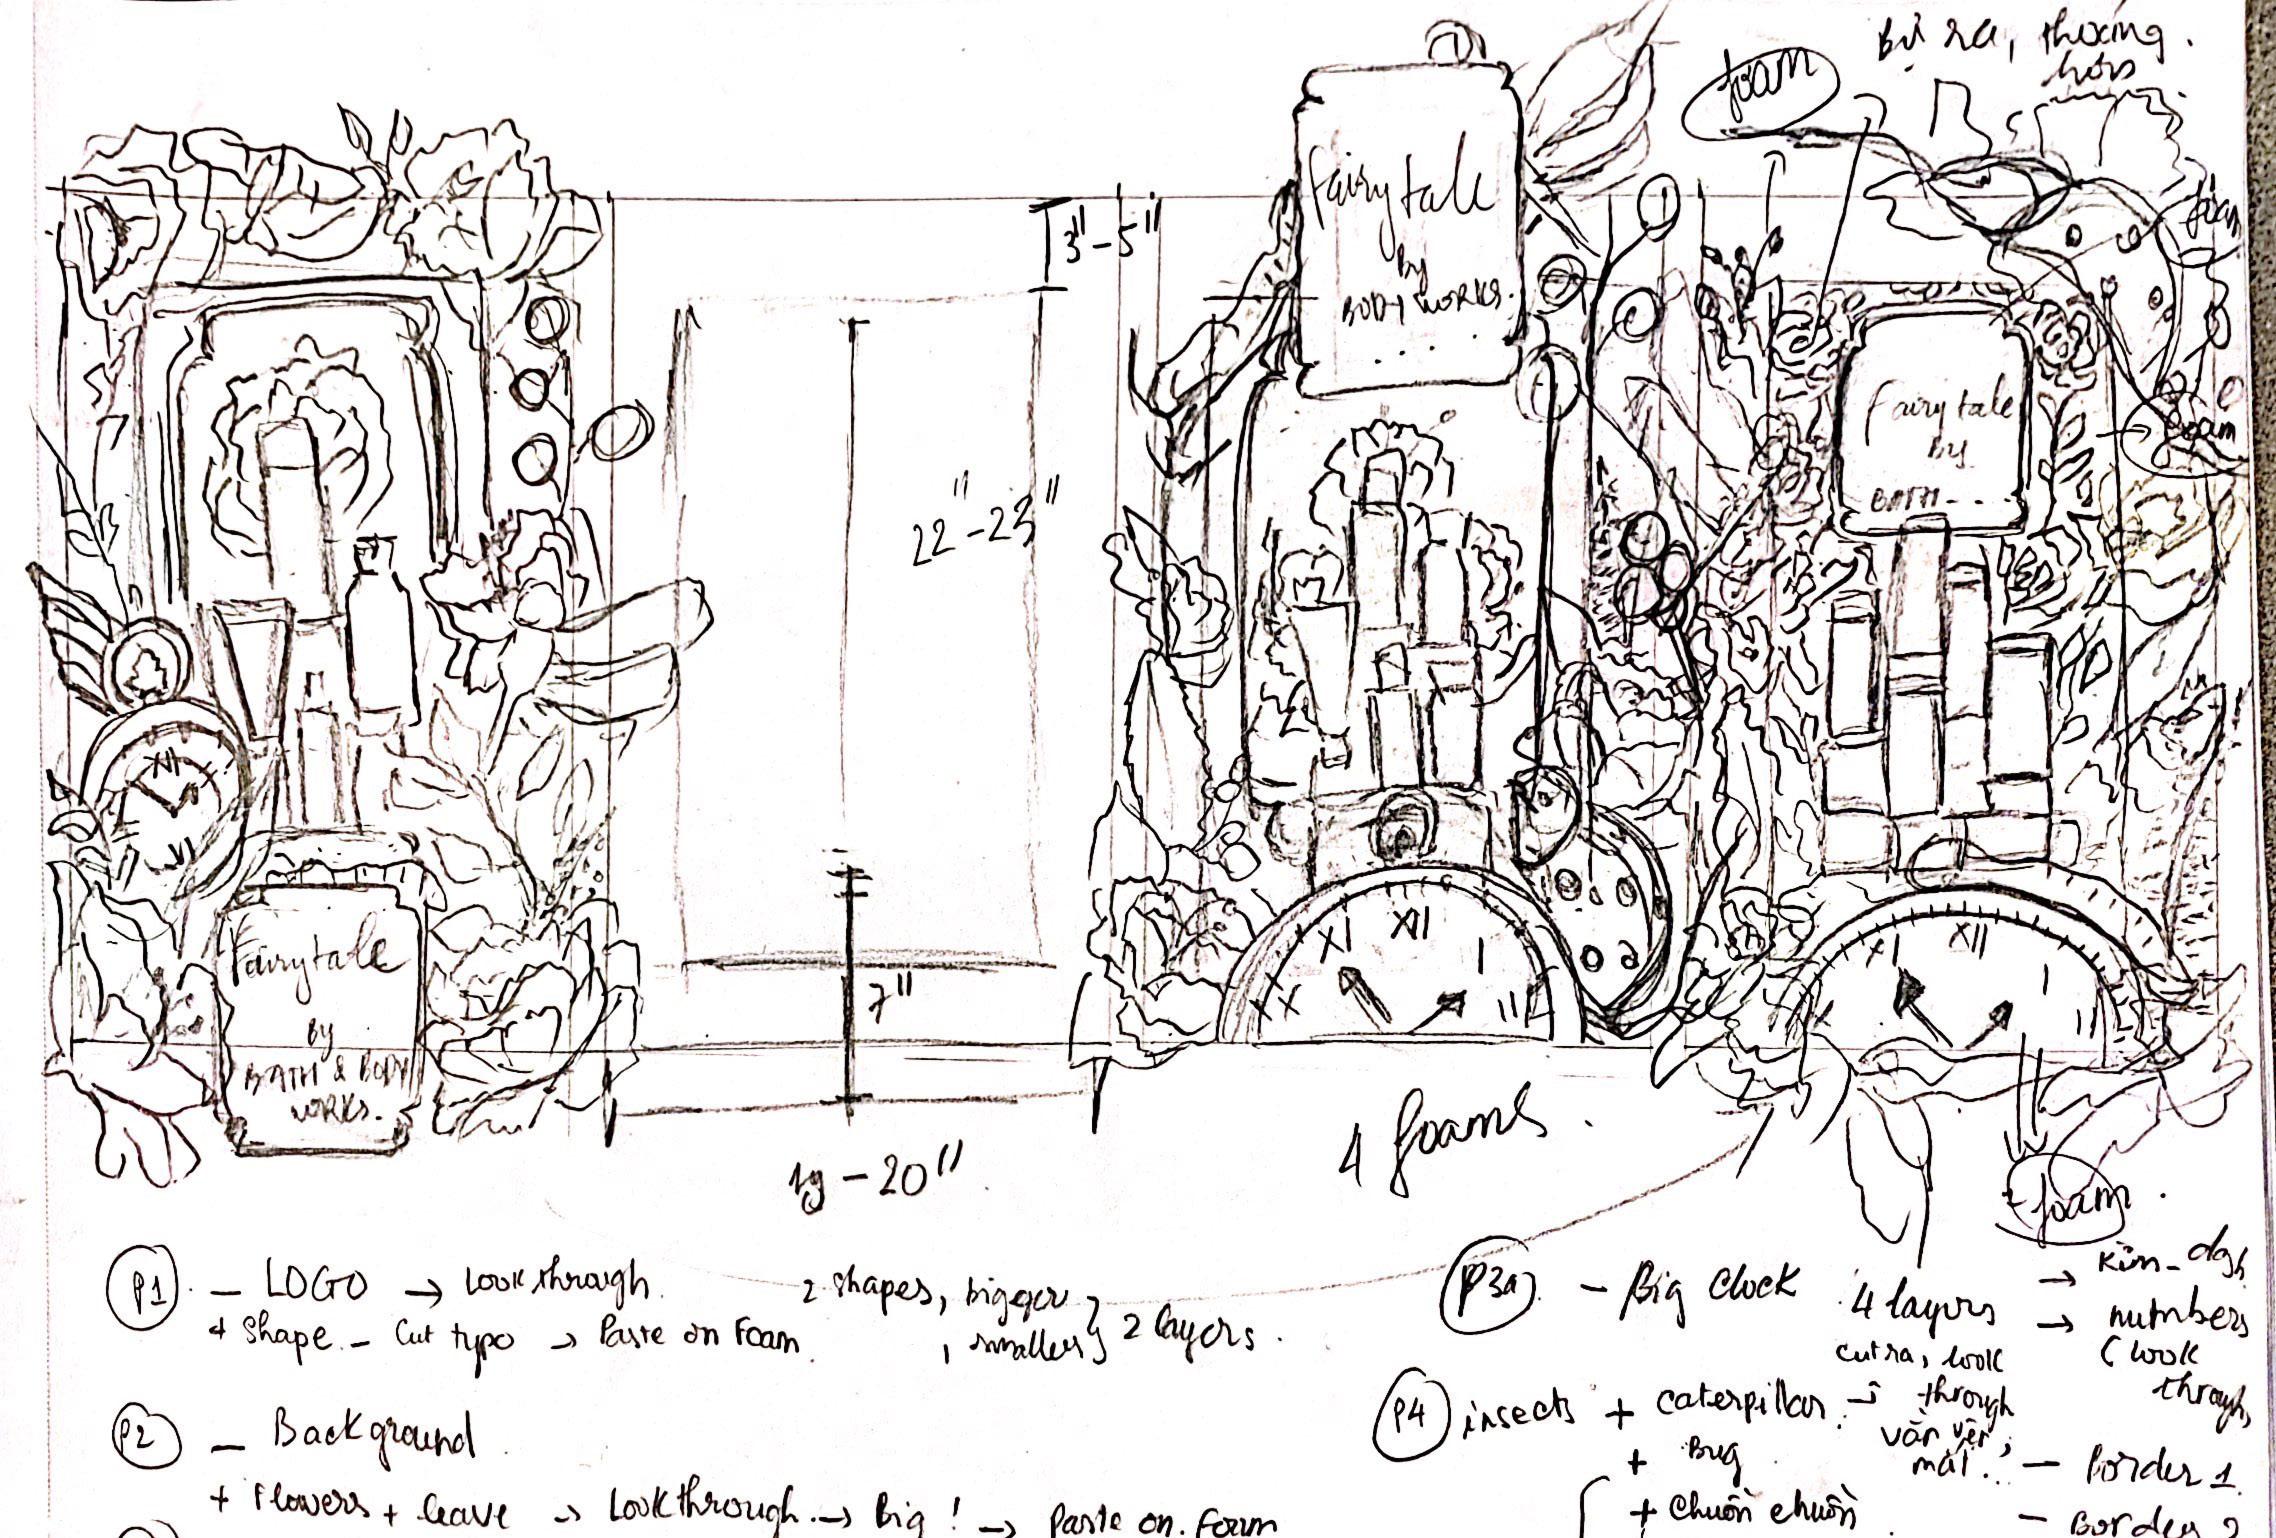 foam
Bự ra, thoáng.
hơn
3"-5"
Fairytale
By
BODY WORKS.
foam
Fairytale
By
BATH---
foam
22"-23"
XII
VI
Fairytale
By
BATH & BODY
WORKS.
7"
XI XII I
X II
XI XII I
II
19-20"
4 foams.
foam.
P1 - LOGO → Look through 2 shapes, bigger
+ Shape - Cut typo → Paste on Foam , smaller } 2 layers.
P2 - Background
+ Flowers + leave → Look through → Big! → Paste on Foam
P3a - Big Clock 4 layers → Kim
→ numbers
(look
through,
cut ra, look
through
P4 insects + Caterpillar →
+ Bug
+ Chuồn chuồn
- Border 1
- Border 2